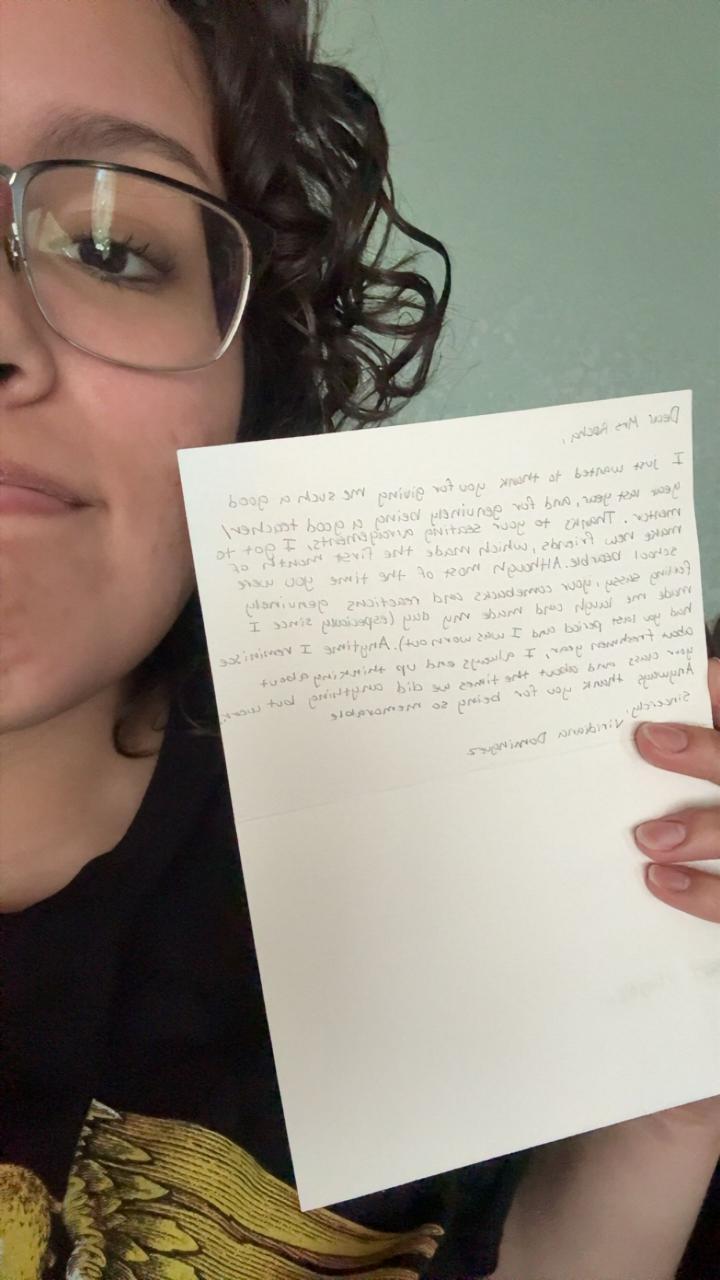 Dear Mrs Rocha,
I just wanted to thank you for giving me such a good
year last year, and for genuinely being a good teacher/
mentor. Thanks to your seating arrangements, I got to
make new friends, which made the first month of
school bearable. Although most of the time you were
feeling sassy, your comebacks and reactions genuinely
made me laugh and made my day (especially since I
had you last period and I was worn out). Anytime I reminisce
about freshmen year, I always end up thinking about
your class and about the times we did anything but work.
Anyways thank you for being so memorable
Sincerely, Viridiana Dominguez